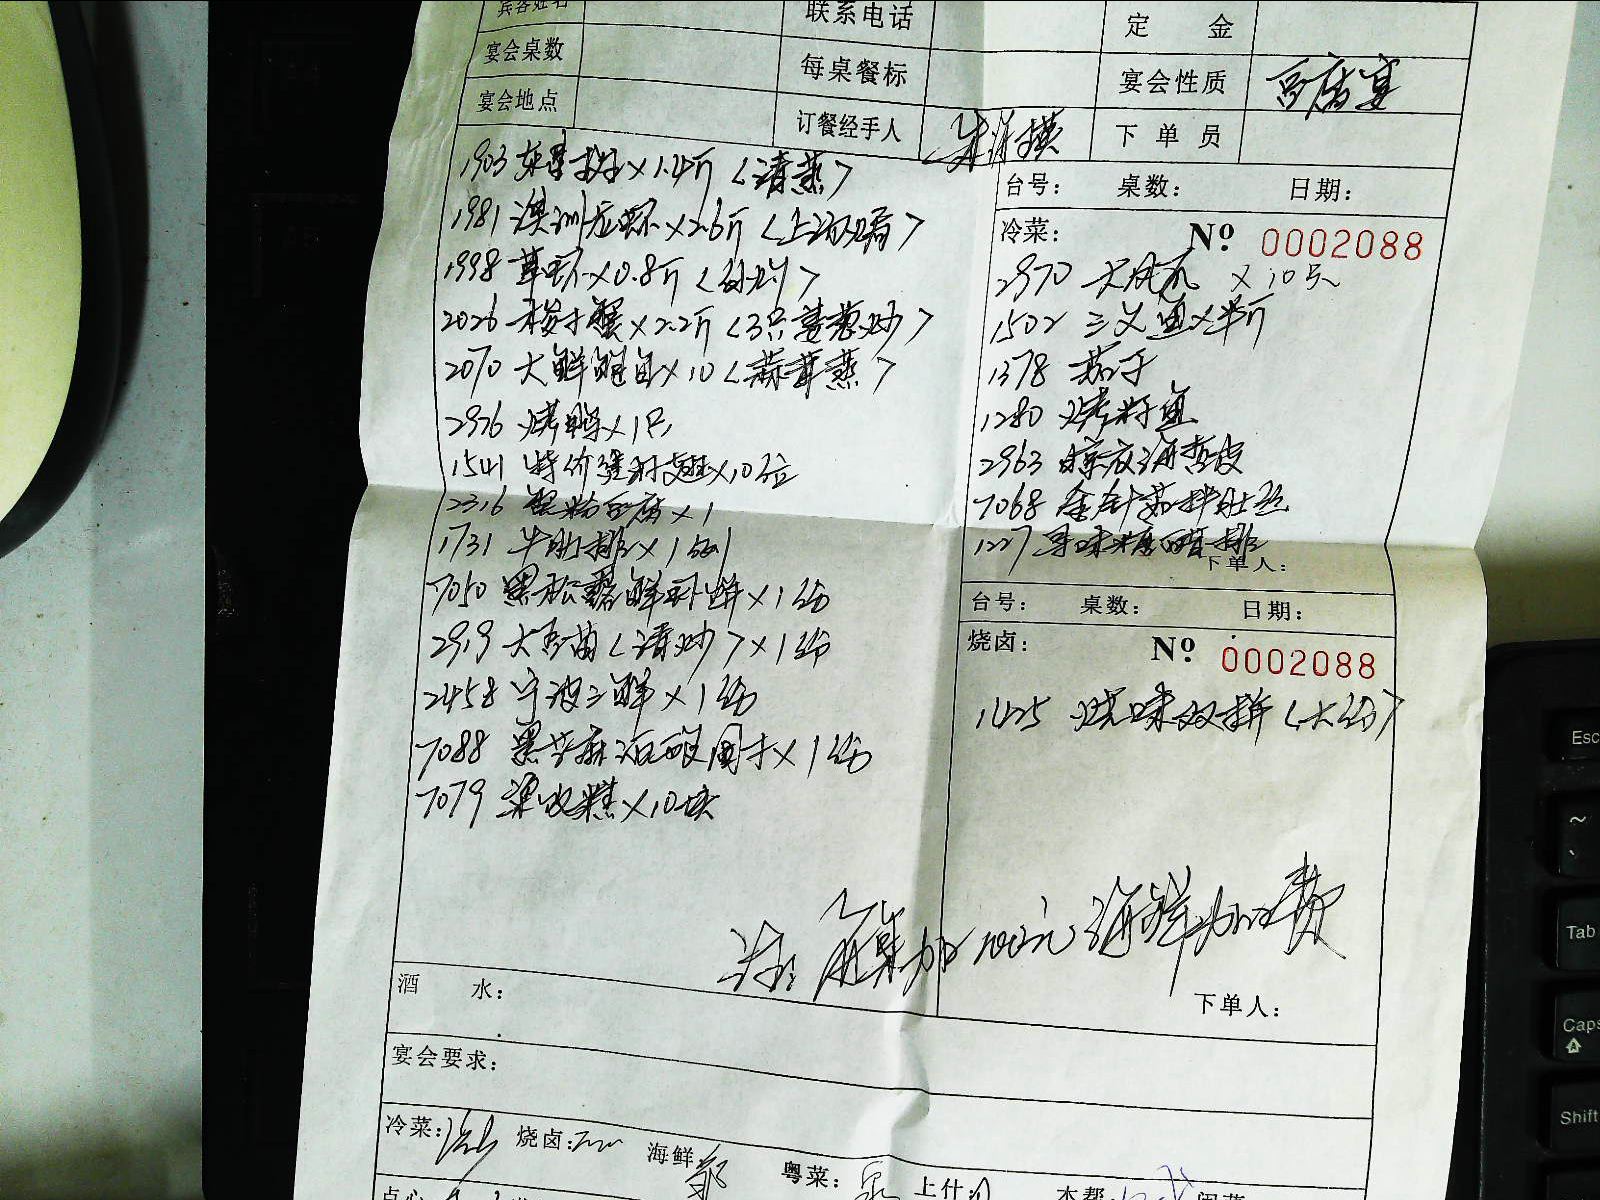 宾客姓名 联系电话 定 金
宴会桌数 每桌餐标 宴会性质 豆腐宴
宴会地点 订餐经手人 下单员
1903 ×1.4斤<清蒸>
1981 澳洲龙虾×2.6斤<上汤焗>
1998 草虾×0.8斤<白灼>
2026 梭子蟹×2.2斤<3只姜葱炒>
2070 大鲜鲍鱼×10<蒜茸蒸>
2976 烤鸭×1只
1541 特价 ×10位
2316 蟹粉豆腐×1
1731 牛肋排×1份
7050 黑松露鲜 ×1份
2919 大豆苗<清炒>×1份
2458 宁波三鲜×1份
7088 黑芝麻 ×1份
7079 糕×10块
台号: 桌数: 日期:
冷菜: Nº 0002088
2970 ×10只
1502 三文鱼×半斤
1378 茄子
1280 烤籽鱼
2963 海蜇皮
7068 金针菇拌肚丝
1227 寻味糖醋排
下单人:
台号: 桌数: 日期:
烧卤: Nº 0002088
1425 烧味双拼<大份>
注: 每桌加100元海鲜加工费
下单人:
酒 水:
宴会要求:
冷菜: 烧卤: 海鲜 粤菜: 上什:
点心 本帮